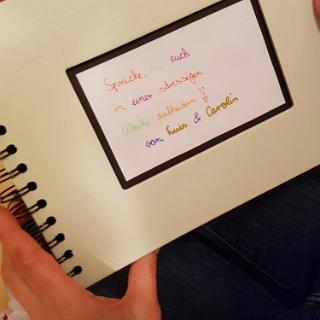 Sprüche, euch
in einer stressigen
Woche aufheitern!
von Luis & Carolin